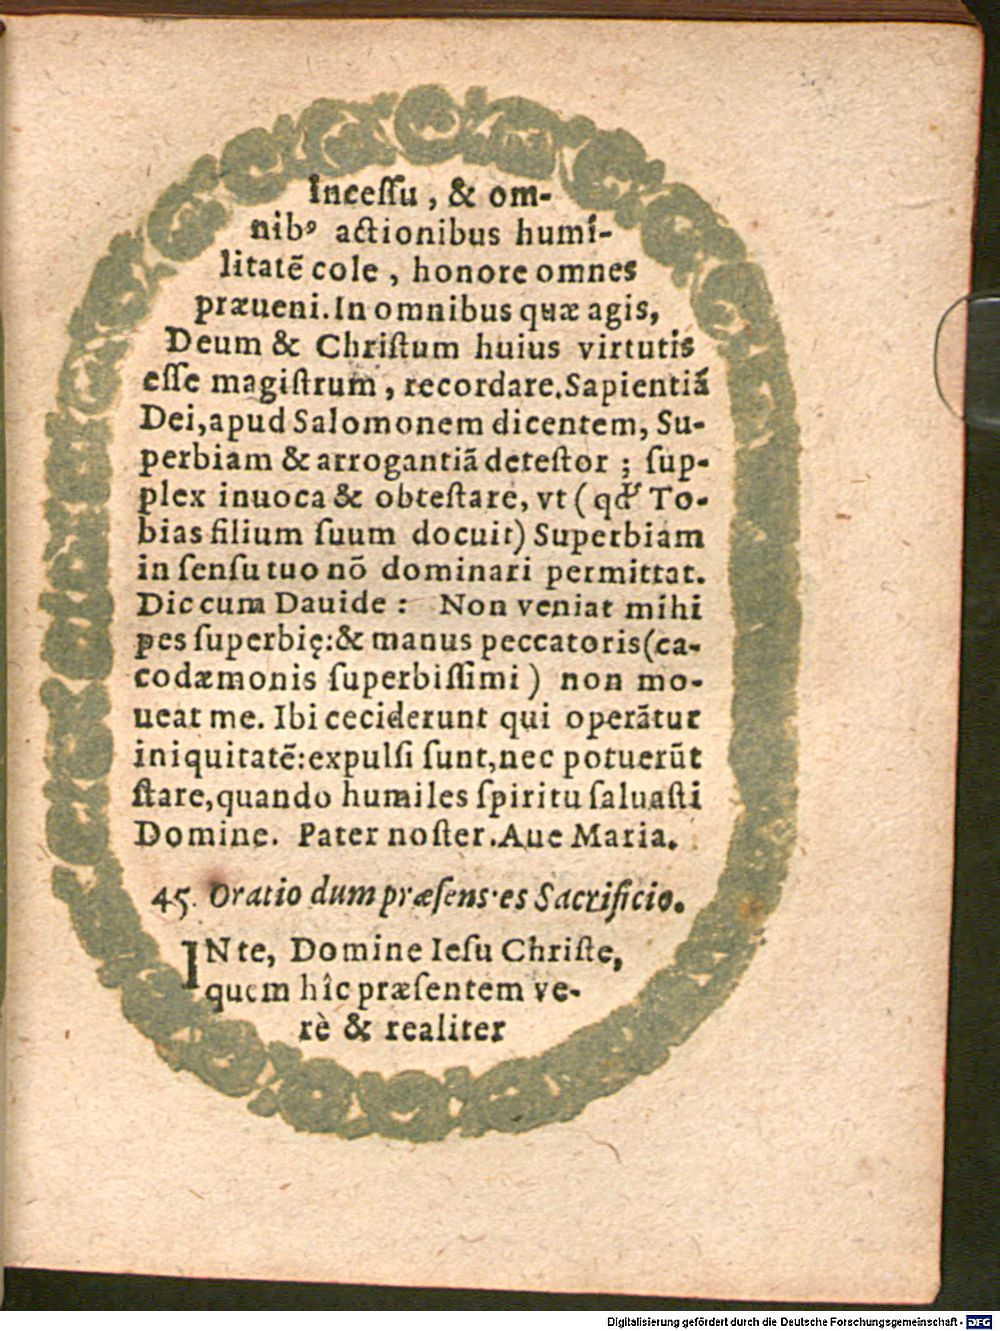 Inceſſu, & om-
nibꝰ actionibus humi-
litatē cole, honore omnes
præueni. In omnibus quæ agis,
Deum & Chriſtum huius virtutis
eſſe magiſtrum, recordare. Sapientiā
Dei, apud Salomonem dicentem, Su-
perbiam & arrogantiã deteſtor; ſup-
plex inuoca & obteſtare, vt (qď To-
bias filium ſuum docuit) Superbiam
in ſenſu tuo nõ dominari permittat.
Dic cum Dauide: Non veniat mihi
pes ſuperbię: & manus peccatoris (ca-
codæmonis ſuperbiſſimi) non mo-
ueat me. Ibi ceciderunt qui operãtur
iniquitatẽ: expulſi ſunt, nec potuerũt
ſtare, quando humiles ſpiritu ſaluaſti
Domine. Pater noſter. Aue Maria.
45. Oratio dum præſens es Sacrificio.
IN te, Domine Ieſu Chriſte,
quem hîc præſentem ve-
rè & realiter
Digitalisierung gefördert durch die Deutsche Forschungsgemeinschaft - DFG